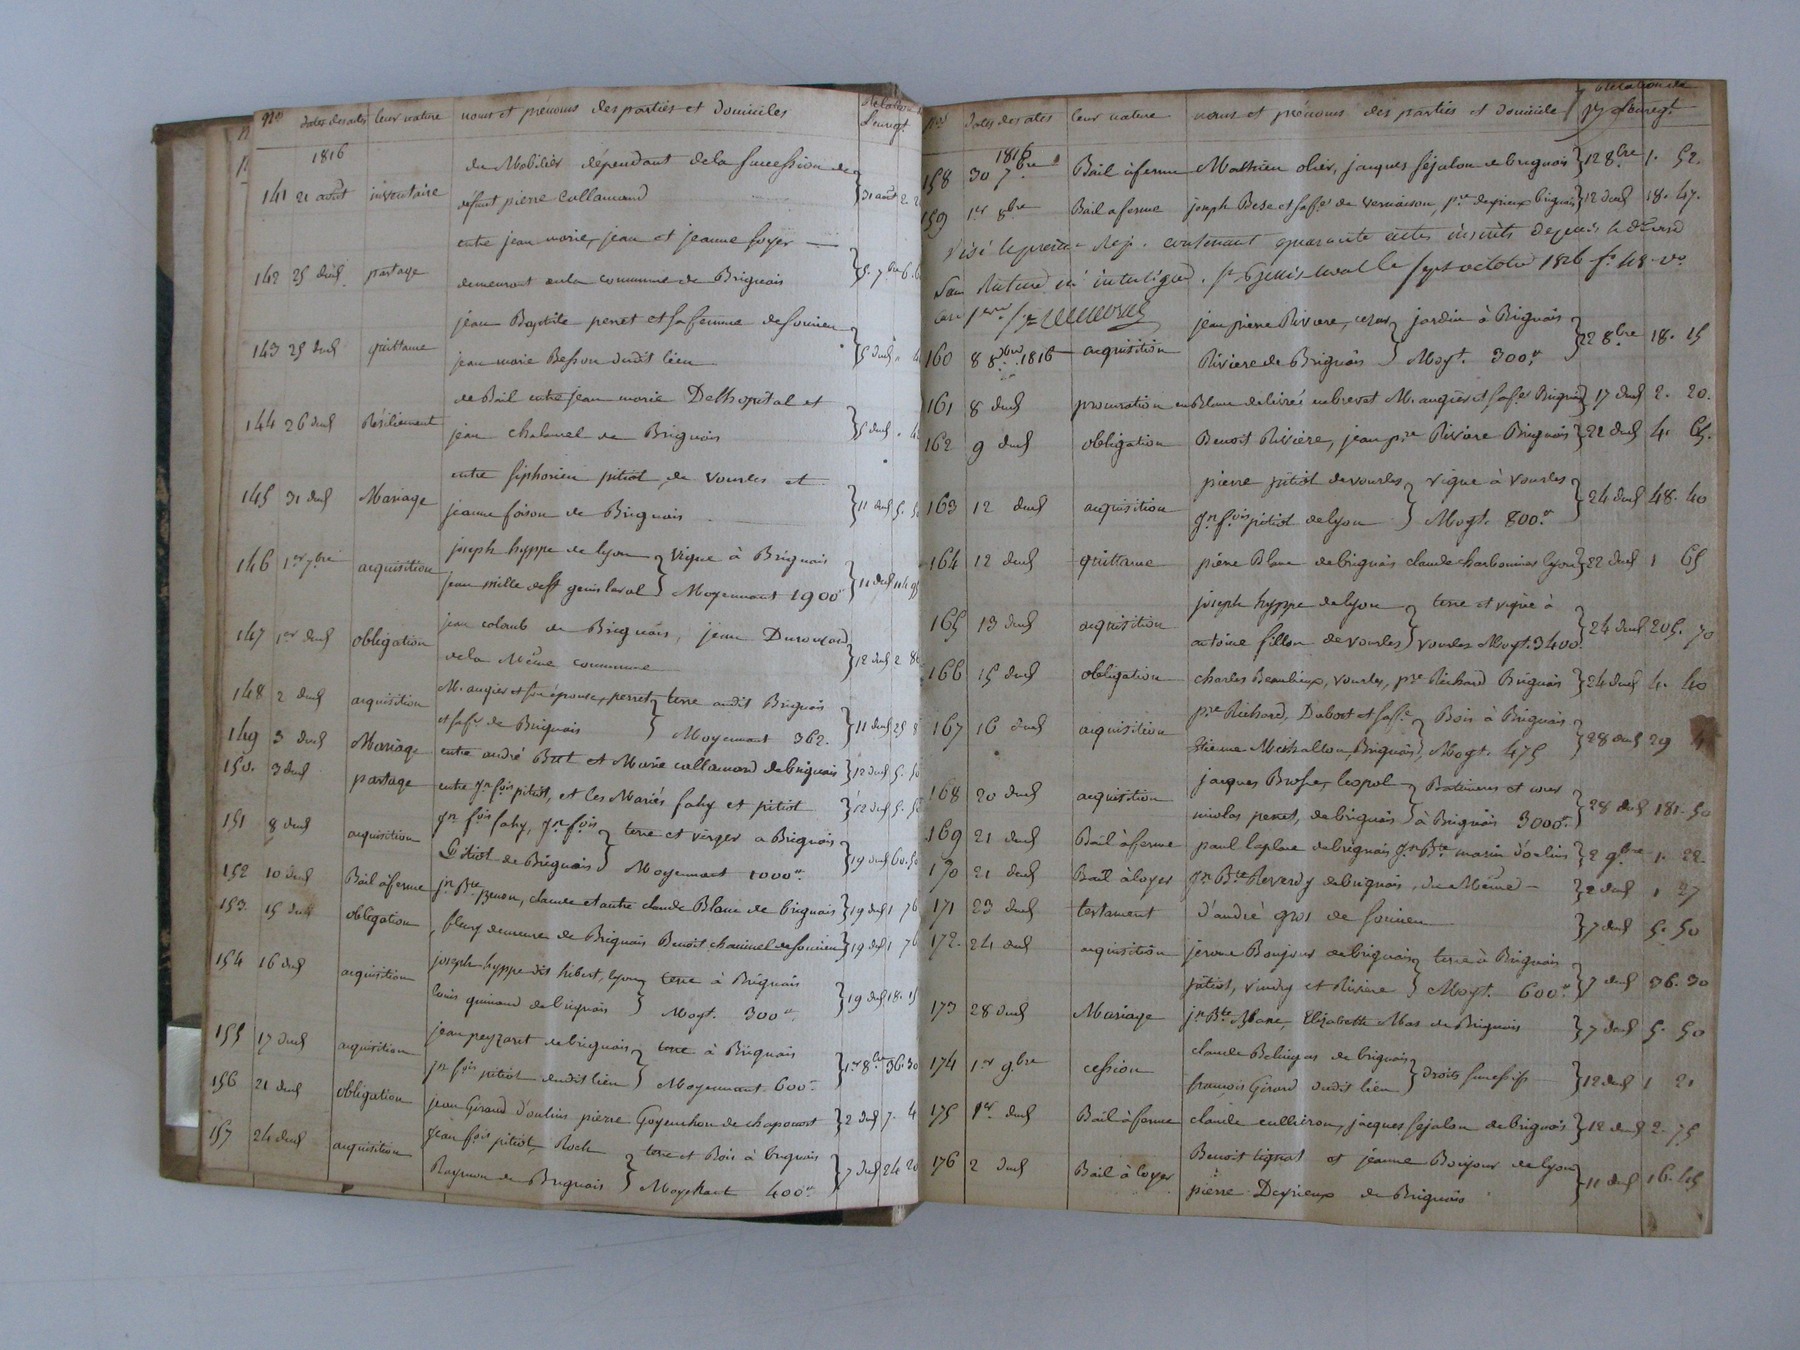 Nos dates des actes leur nature noms et prénoms des parties et domiciles Relation de l'enregt.
1816
141 21 août inventaire du Mobilier dépendant de la succession de
défunt pierre Collamard } 31 août 2.
142 25 dud. partage entre jean marie, jean et jeanne foyer
demeurant en la commune de Brignais } 5. 7bre 6.
143 25 dud quittance jean Baptiste perret et sa femme de soucieu
jean marie Besson dudit lieu } 5 dud
144 26 dud Résiliement de Bail entre jean marie Delhopital et
jean chalamel de Brignais } 5 dud
145 31 dud Mariage entre siphorien pitiot de vourles et
jeanne foison de Brignais } 11 dud 5.
146 1er 7bre acquisition joseph hyppe de lyon } vigne à Brignais
jean mille de st genis laval } Moyennant 1900 } 11 dud 114
147 1er dud obligation jean colomb de Brignais, jean
de la Même commune } 12 dud 2
148 2 dud acquisition M. augier et son épouse, perret } terre audit Brignais
et sa fe de Brignais } Moyennant 362. } 11 dud 25
149 3 dud Mariage entre andré et Marie collamard de brignais } 12 dud 5. 50
150. 3 dud partage entre jn fois pitiot, et les Mariés fahy et pitiot } 12 dud 5. 5
151 8 dud acquisition jn fois fahy, jn fois } terre et verger a Brignais
Pitiot de Brignais } Moyennant 1000 } 19 dud 60. 50
152 10 dud Bail à ferme jn Bte claude et autre claude Blanc de brignais } 19 dud 1 76
153. 15 dud obligation fleury demeure de Brignais Benoit de soucieu } 19 dud 1 76
154 16 dud acquisition joseph hyppe dit hibert, lyon } terre à Brignais
louis guinand de brignais } Moyt. 300 } 19 dud 18. 15
155 17 dud acquisition jean peyzaret de brignais } terre à Brignais
jn fois pitiot dudit lieu } Moyennant 600 } 1er 8bre 36. 30
156 21 dud obligation jean Girard d'oulins pierre Goyenchon de chaponost } 2 dud 7. 4
157 24 dud acquisition jean fois pitiot, Roch } terre et Bois à brignais
Raymon de Brignais } Moyennant 400 } 7 dud 24 20
Nos dates des actes leur nature noms et prénoms des parties et domicile Relation de l'enregt.
1816
158 30 7bre Bail à ferme Mathieu olier, jacques séjalon de brignais } 12 8bre 1. 52.
159 1er 8bre Bail a ferme joseph Bese et sa fe de vernaison, pre deyrieux brignais } 12 dud 18. 47.
Visé le présent Rep. contenant quarante actes inscrits depuis le
St Genis Laval le sept octobre 1816 fo 48 vo
160 8 8bre 1816 acquisition jean pierre Riviere, cesar } jardin à Brignais
Riviere de Brignais } Moyt. 300 } 22 8bre 18. 15
161 8 dud procuration en Blanc délivrée en brevet M. augier et sa fe Brignais } 17 dud 2. 20.
162 9 dud obligation Benoit Rivière, jean pre Rivière Brignais } 22 dud 4. 65.
163 12 dud acquisition pierre pitiot de vourles } vigne à vourles
jn fois pitiot de lyon } Moyt. 800 } 24 dud 48. 40
164 12 dud quittance pierre Blanc de brignais claude charbonnier lyon } 22 dud 1 65
165 13 dud acquisition joseph hyppe de lyon } terre et vigne à
antoine fillon de vourles } vourles Moyt. 3400 } 24 dud 205. 70
166 15 dud obligation charles Beaulieux, vourles, pre Richard Brignais } 24 dud 4. 40
167 16 dud acquisition pre Richard, Dubost et sa fe } Bois à Brignais
Etienne Michallon, Brignais } Moyt. 475 } 28 dud 29
168 20 dud acquisition jacques Brosse, leopol } Batimens et cour
nicolas perret, de brignais } à Brignais 3000 } 28 dud 181. 50
169 21 dud Bail à ferme paul laplace de brignais jn Bte marin d'oulins } 2 9bre 1. 22.
170 21 dud Bail à loyer jn Bte Reverdy de brignais, du Même } 2 dud 1 27
171 23 dud testament d'andré gros de soucieu } 7 dud 5. 50
172. 24 dud acquisition jerome Bonjour de brignais } terre à Brignais
pitiot, vindry et Rivière } Moyt. 600 } 7 dud 36. 30
173 28 dud Mariage jn Bte Elizabeth Mas de Brignais } 7 dud 5. 50
174 1er 9bre cession claude de brignais } droits successifs
françois Girard dudit lien } 12 dud 1 21
175 1er dud Bail à ferme claude cullieron, jacques sejalon de brignais } 12 dud 2. 75
176 2 dud Bail à loyer Benoit tignat et jeanne Bonjour de lyon
pierre Deyrieux de Brignais } 11 dud 16. 45